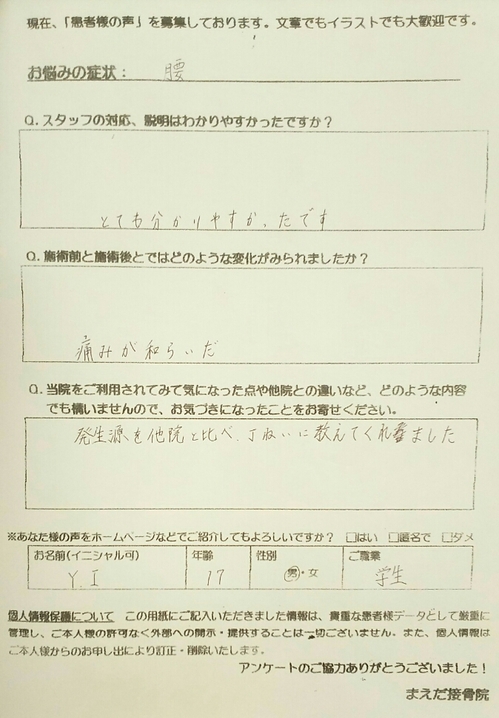 現在、「患者様の声」を募集しております。文章でもイラストでも大歓迎です。
お悩みの症状： 腰
Q.スタッフの対応、説明はわかりやすかったですか？
とても分かりやすかったです
Q.施術前と施術後とではどのような変化がみられましたか？
痛みが和らいだ
Q.当院をご利用されてみて気になった点や他院との違いなど、どのような内容
でも構いませんので、お気づきになったことをお寄せください。
発生源を他院と比べ、丁ねいに教えてくれました
※あなた様の声をホームページなどでご紹介してもよろしいですか？ □はい □匿名で □ダメ
お名前(イニシャル可) 年齢 性別 ご職業
Y.I 17 男・女 学生
個人情報保護について この用紙にご記入いただきました情報は、貴重な患者様データとして厳重に
管理し、ご本人様の許可なく外部への開示・提供することは一切ございません。また、個人情報は
ご本人様からのお申し出により訂正・削除いたします。
アンケートのご協力ありがとうございました！
まえだ接骨院